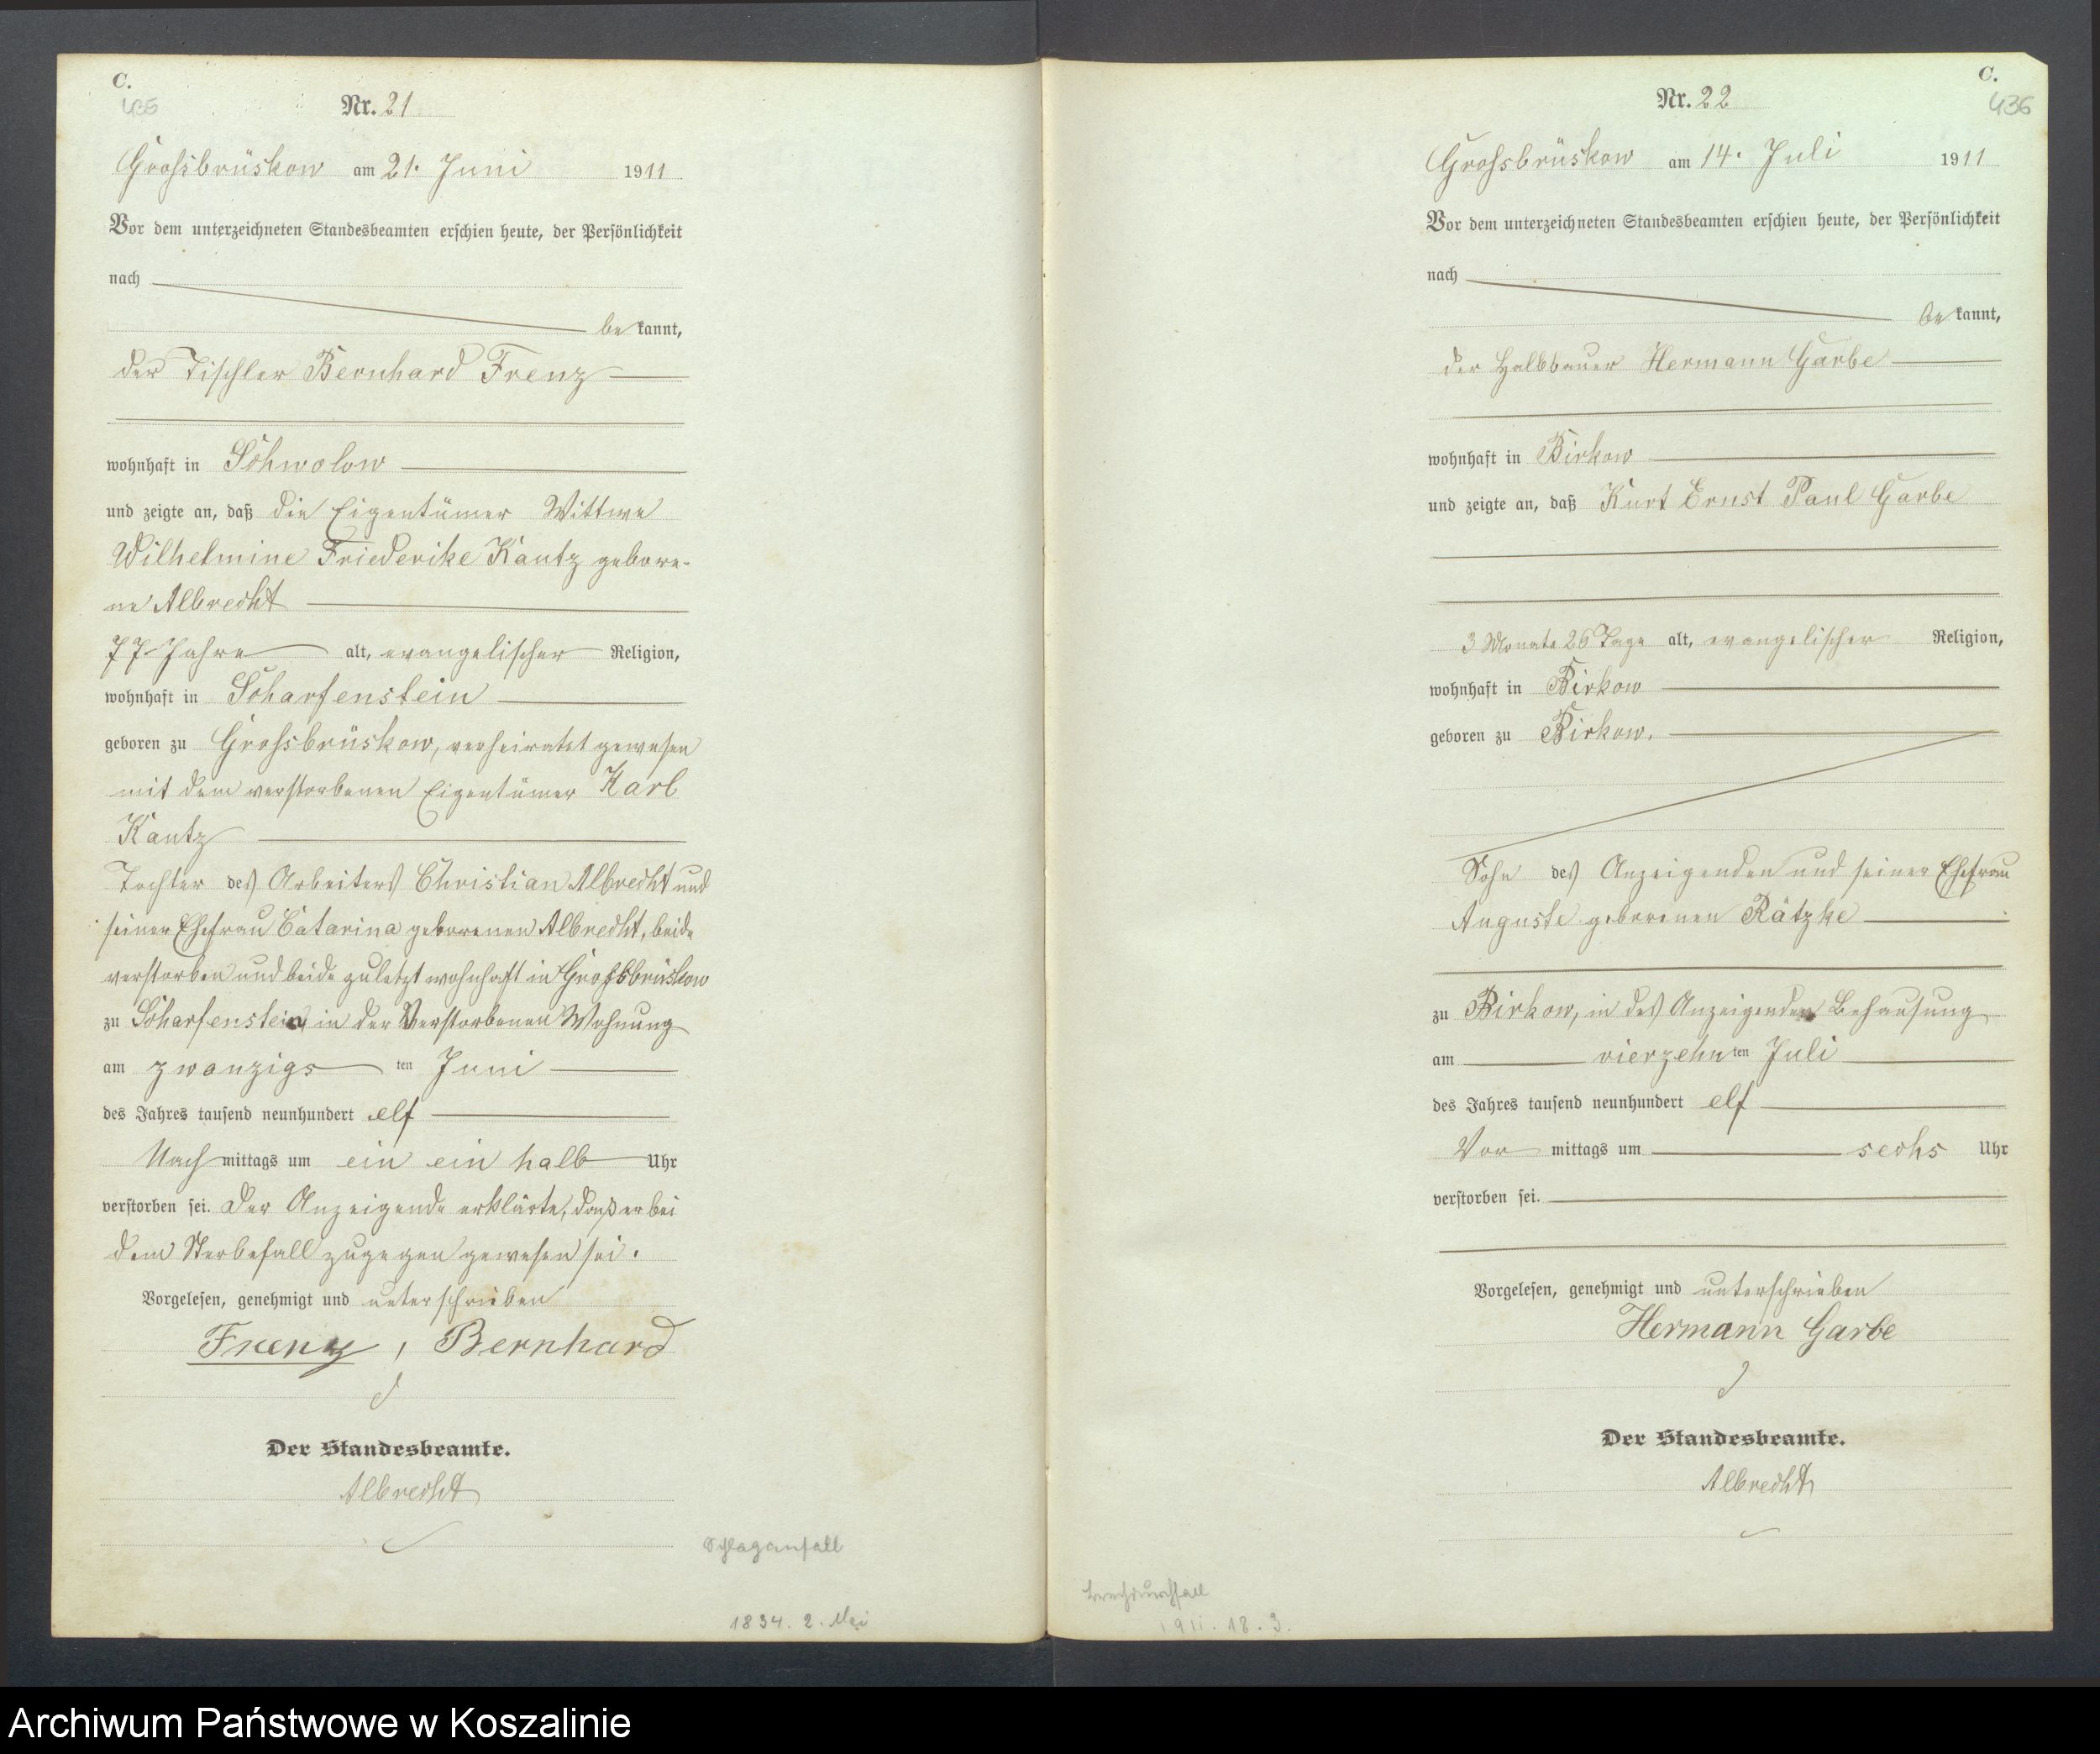 C.
435
Nr. 21
Grossbrüskow am 21. Juni 1911
Vor dem unterzeichneten Standesbeamten erschien heute, der Persönlichkeit
nach
be kannt,
der Tischler Bernhard Frenz
wohnhaft in Schwolow
und zeigte an, daß die Eigentümer Wittwe
Wilhelmine Friederike Kautz gebore-
ne Albrecht
77 Jahre alt, evangelischer Religion,
wohnhaft in Scharfenstein
geboren zu Grossbrüskow, verheiratet gewesen
mit dem verstorbenen Eigentümer Karl
Kautz
Tochter des Arbeiters Christian Albrecht und
seiner Ehefrau Catarina geborenen Albrecht, beide
verstorben und beide zuletzt wohnhaft in Grossbrüskow
zu Scharfenstein in der Verstorbenen Wohnung
am zwanzigs ten Juni
des Jahres tausend neunhundert elf
Nach mittags um ein ein halb Uhr
verstorben sei. Der Anzeigende erklärte, daß er bei
dem Sterbefall zugegen gewesen sei.
Vorgelesen, genehmigt und unterschrieben
Frenz, Bernhard
Der Standesbeamte.
Albrecht
Schlaganfall
1834. 2. Mai
C.
436
Nr. 22
Grossbrüskow am 14. Juli 1911
Vor dem unterzeichneten Standesbeamten erschien heute, der Persönlichkeit
nach
be kannt,
der Halbbauer Hermann Garbe
wohnhaft in Birkow
und zeigte an, daß Kurt Ernst Paul Garbe
3 Monate 26 Tage alt, evangelischer Religion,
wohnhaft in Birkow
geboren zu Birkow.
Sohn des Anzeigenden und seiner Ehefrau
Auguste geborenen Rätzke
zu Birkow, in des Anzeigenden Behausung
am vierzehn ten Juli
des Jahres tausend neunhundert elf
Vor mittags um sechs Uhr
verstorben sei.
Vorgelesen, genehmigt und unterschrieben
Hermann Garbe
Der Standesbeamte.
Albrecht
Brechdurchfall
1911. 18. 3.
Archiwum Państwowe w Koszalinie